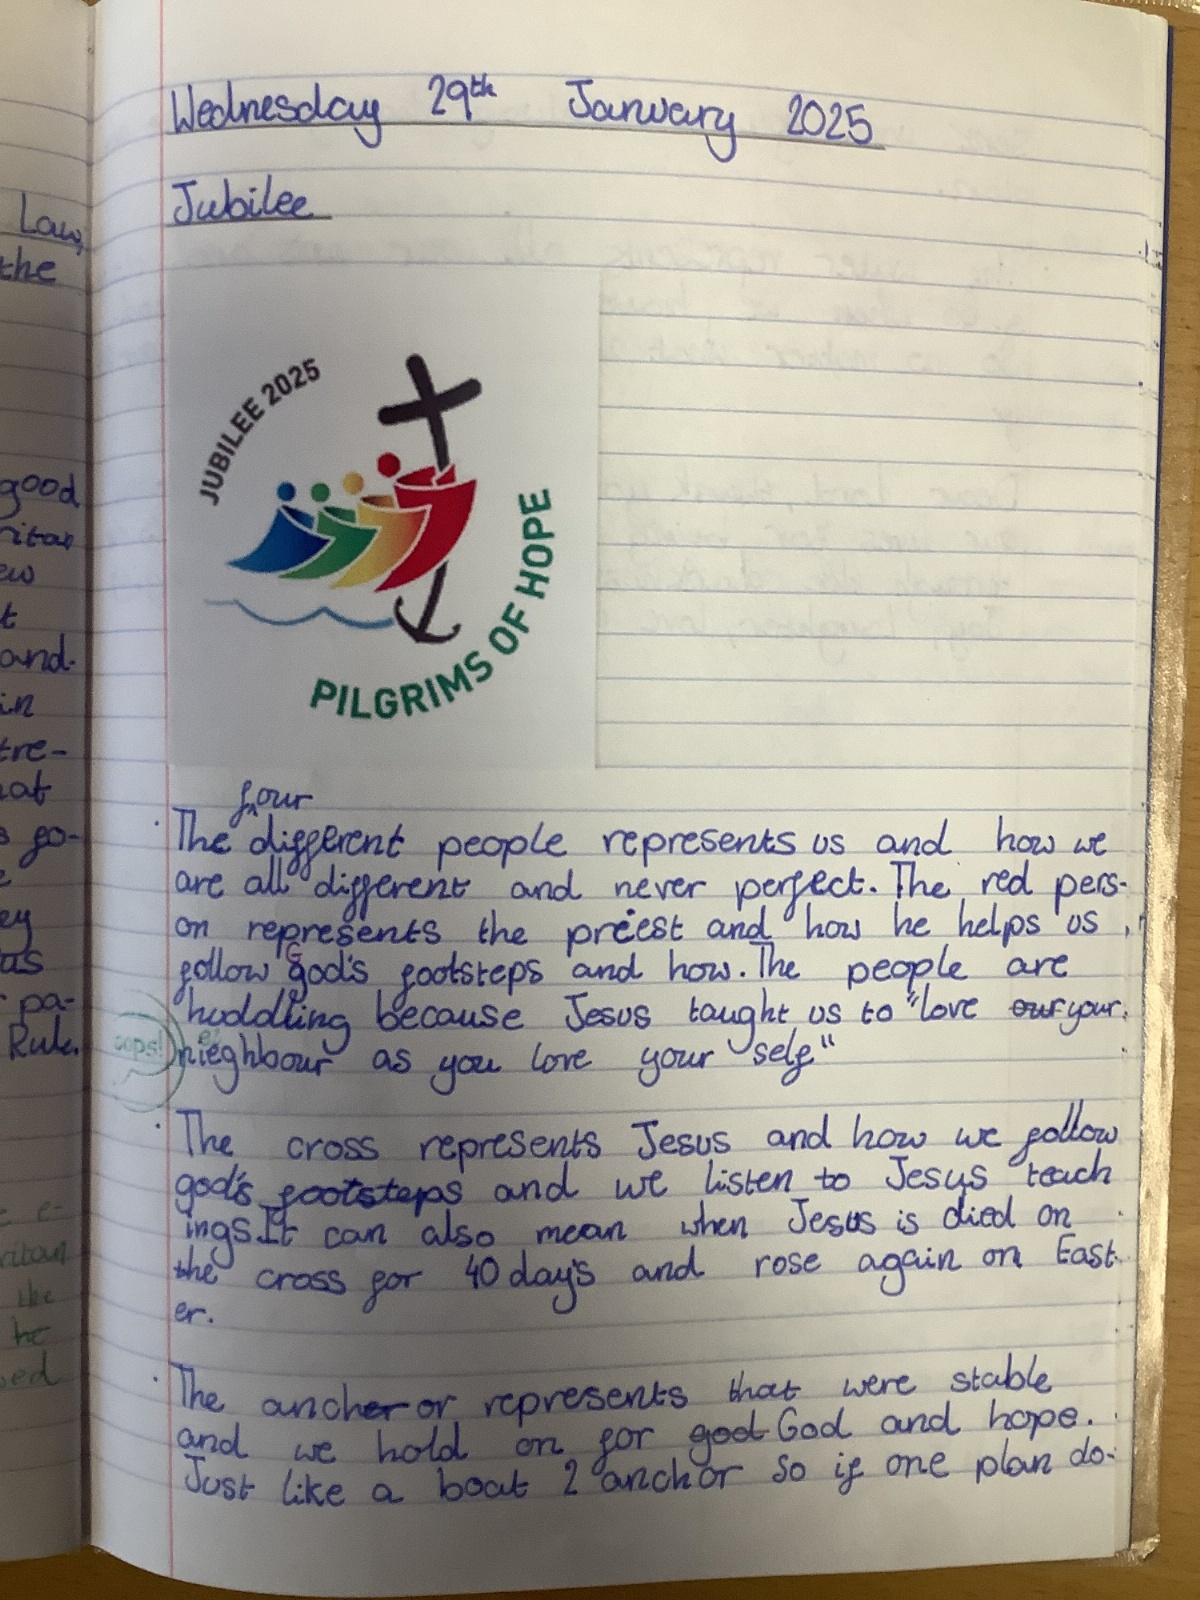 Wednesday 29th January 2025
Jubilee
JUBILEE 2025
PILGRIMS OF HOPE
four
The ^ different people represents us and how we
are all different and never perfect. The red pers-
on represents the prieest and how he helps us
follow God's footsteps and how. The people are
huddling because Jesus taught us to "love our your
oops! nieghbour as you love your self"
ei
The cross represents Jesus and how we follow
god's footsteps and we listen to Jesus teach
ings. It can also mean when Jesus is died on
the cross for 40 day's and rose again on East
er.
The ancher or represents that were stable
and we hold on for god God and hope.
Just like a boat 2 anchor so if one plan do-
Law,
the
good
ritan
ew
t
and-
in
tre-
hat
s go-
e
ey
as
pa-
Rule.
e e-
ritan
like
he
sed